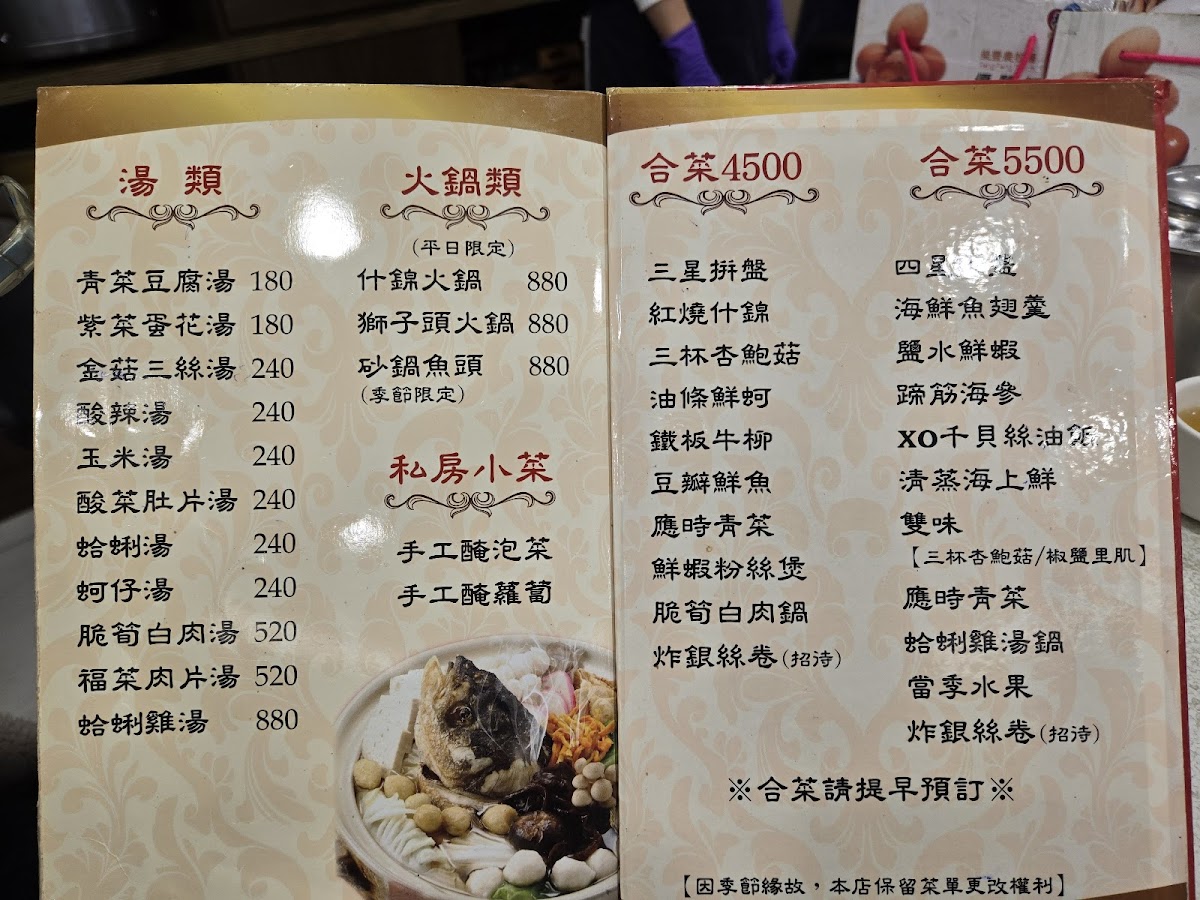 湯 類
青菜豆腐湯 180
紫菜蛋花湯 180
金菇三絲湯 240
酸辣湯 240
玉米湯 240
酸菜肚片湯 240
蛤蜊湯 240
蚵仔湯 240
脆筍白肉湯 520
福菜肉片湯 520
蛤蜊雞湯 880
火鍋類
(平日限定)
什錦火鍋 880
獅子頭火鍋 880
砂鍋魚頭 880
(季節限定)
私房小菜
手工醃泡菜
手工醃蘿蔔
合菜4500
三星拼盤
紅燒什錦
三杯杏鮑菇
油條鮮蚵
鐵板牛柳
豆瓣鮮魚
應時青菜
鮮蝦粉絲煲
脆筍白肉鍋
炸銀絲卷(招待)
合菜5500
四星 盤
海鮮魚翅羹
鹽水鮮蝦
蹄筋海參
XO干貝絲油飯
清蒸海上鮮
雙味
【三杯杏鮑菇/椒鹽里肌】
應時青菜
蛤蜊雞湯鍋
當季水果
炸銀絲卷(招待)
※合菜請提早預訂※
【因季節緣故，本店保留菜單更改權利】